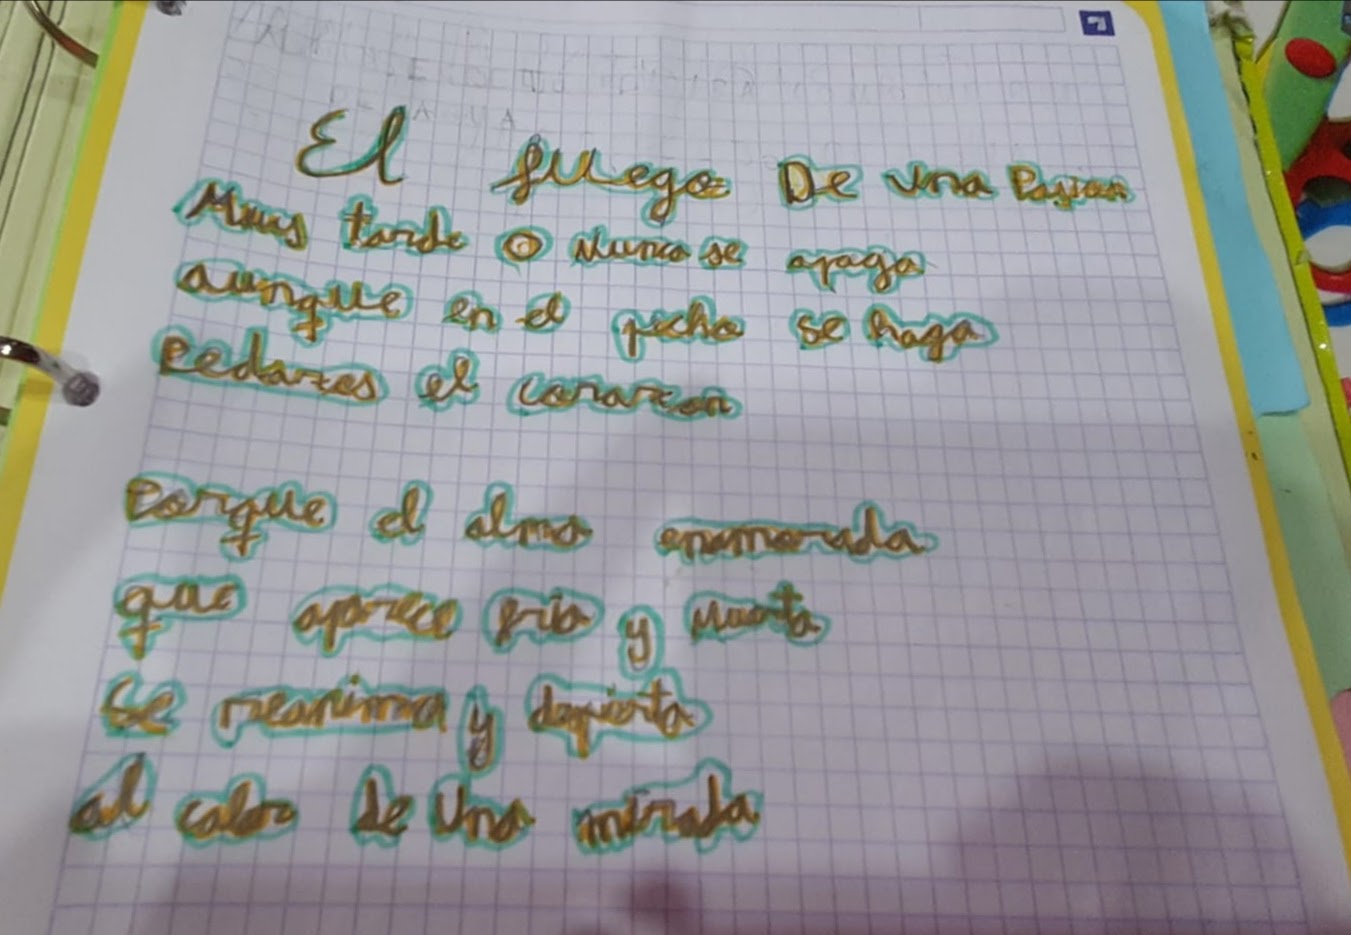 El fuego De una Pasion
Muy tarde O Nunca se apaga
aunque en el pecho se haga
Pedazos el corazon
Porque el alma enamorada
que aparece fria y Muerta
Se reanima y despierta
al calor de una mirada